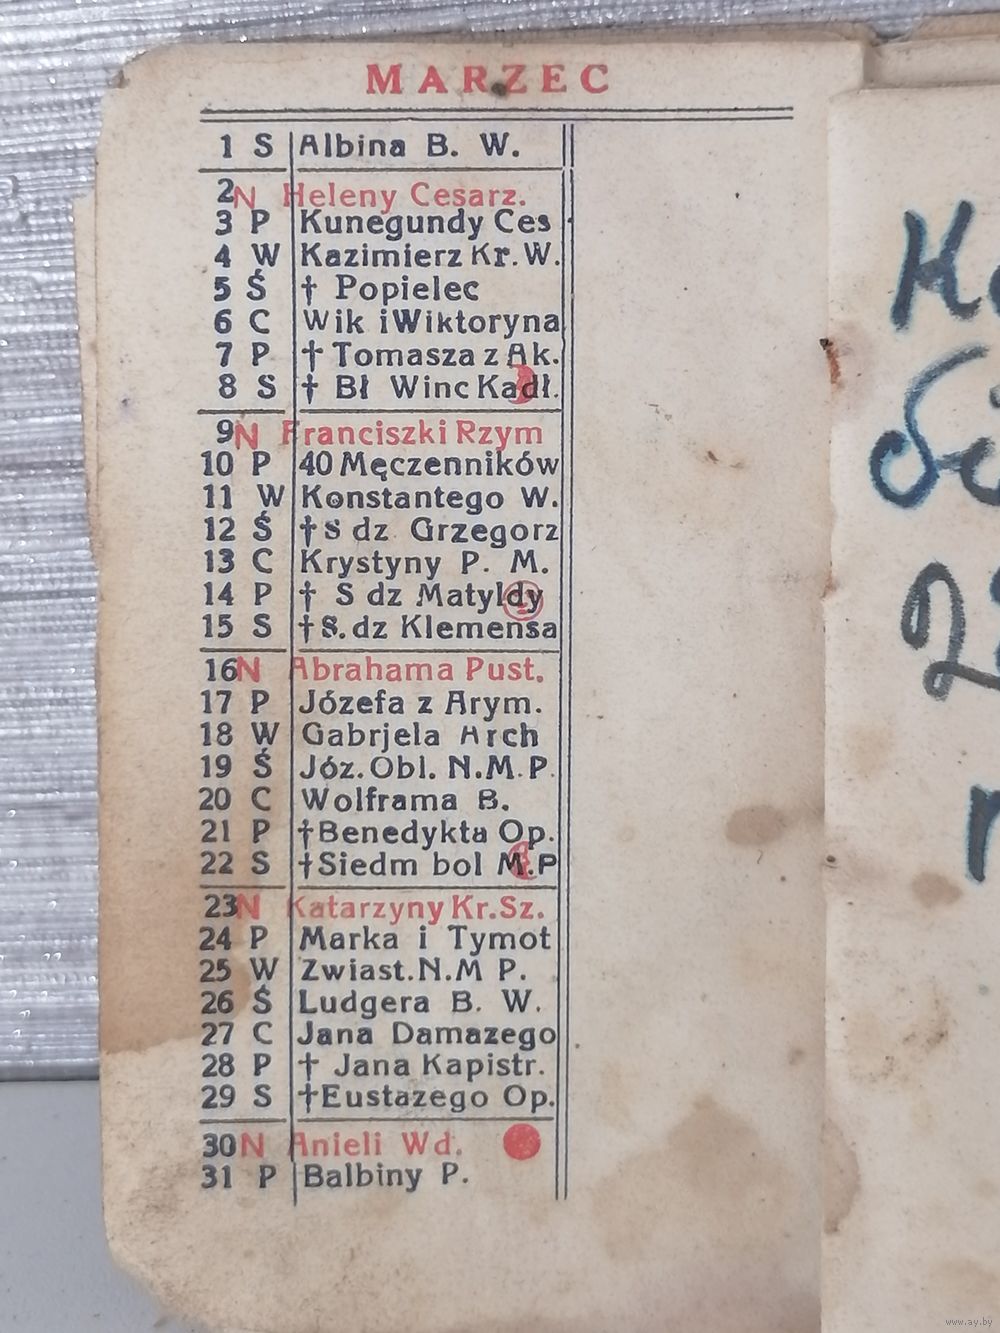 MARZEC
1 S Albina B. W.
2 N Heleny Cesarz.
3 P Kunegundy Ces
4 W Kazimierz Kr. W.
5 Ś † Popielec
6 C Wik i Wiktoryna
7 P † Tomasza z Ak.
8 S † Bł Winc Kadł.
9 N Franciszki Rzym
10 P 40 Męczenników
11 W Konstantego W.
12 Ś † S dz Grzegorz
13 C Krystyny P. M.
14 P † S dz Matyldy
15 S † S. dz Klemensa
16 N Abrahama Pust.
17 P Józefa z Arym.
18 W Gabrjela Arch
19 Ś Józ. Obl. N. M. P.
20 C Wolframa B.
21 P † Benedykta Op.
22 S † Siedm bol M.P
23 N Katarzyny Kr. Sz.
24 P Marka i Tymot
25 W Zwiast. N. M P.
26 Ś Ludgera B. W.
27 C Jana Damazego
28 P † Jana Kapistr.
29 S † Eustazego Op.
30 N Anieli Wd.
31 P Balbiny P.
www.ay.by